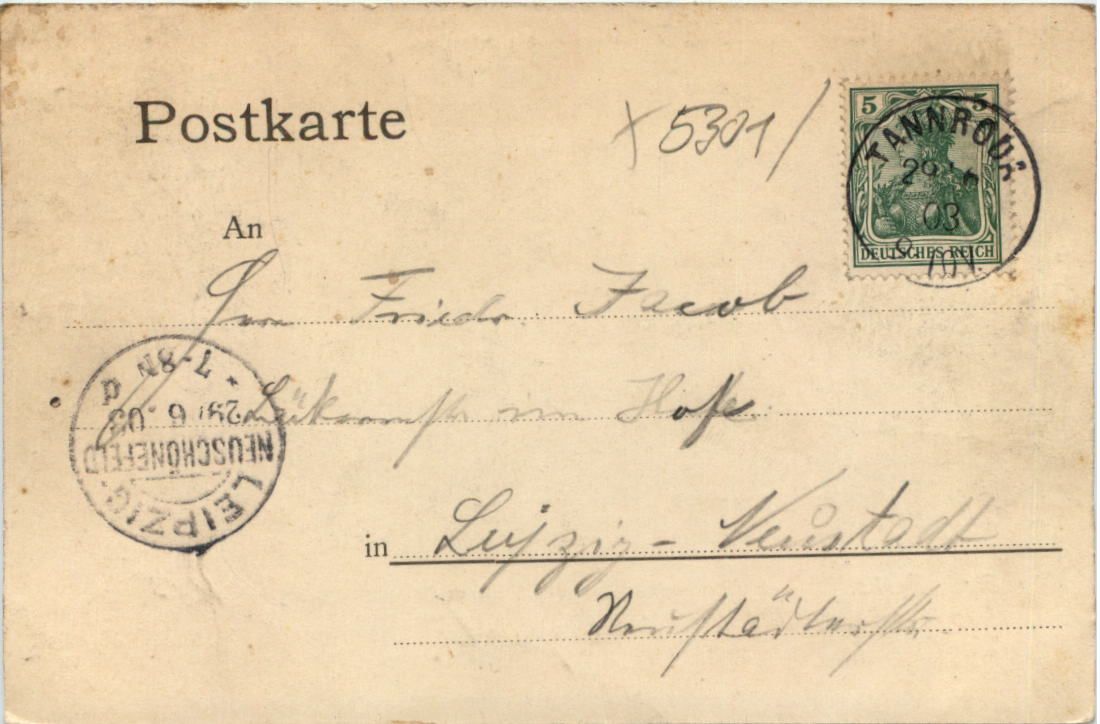 Postkarte
5301
5 5
TANNRODA
29 6
03
8-10V.
DEUTSCHES REICH
An
Herrn Friedr. Jacob
im Hofe
in Leipzig-Neustadt
Neustädterstr.
LEIPZIG-
NEUSCHÖNEFELD
29. 6. 03
7-8N
d